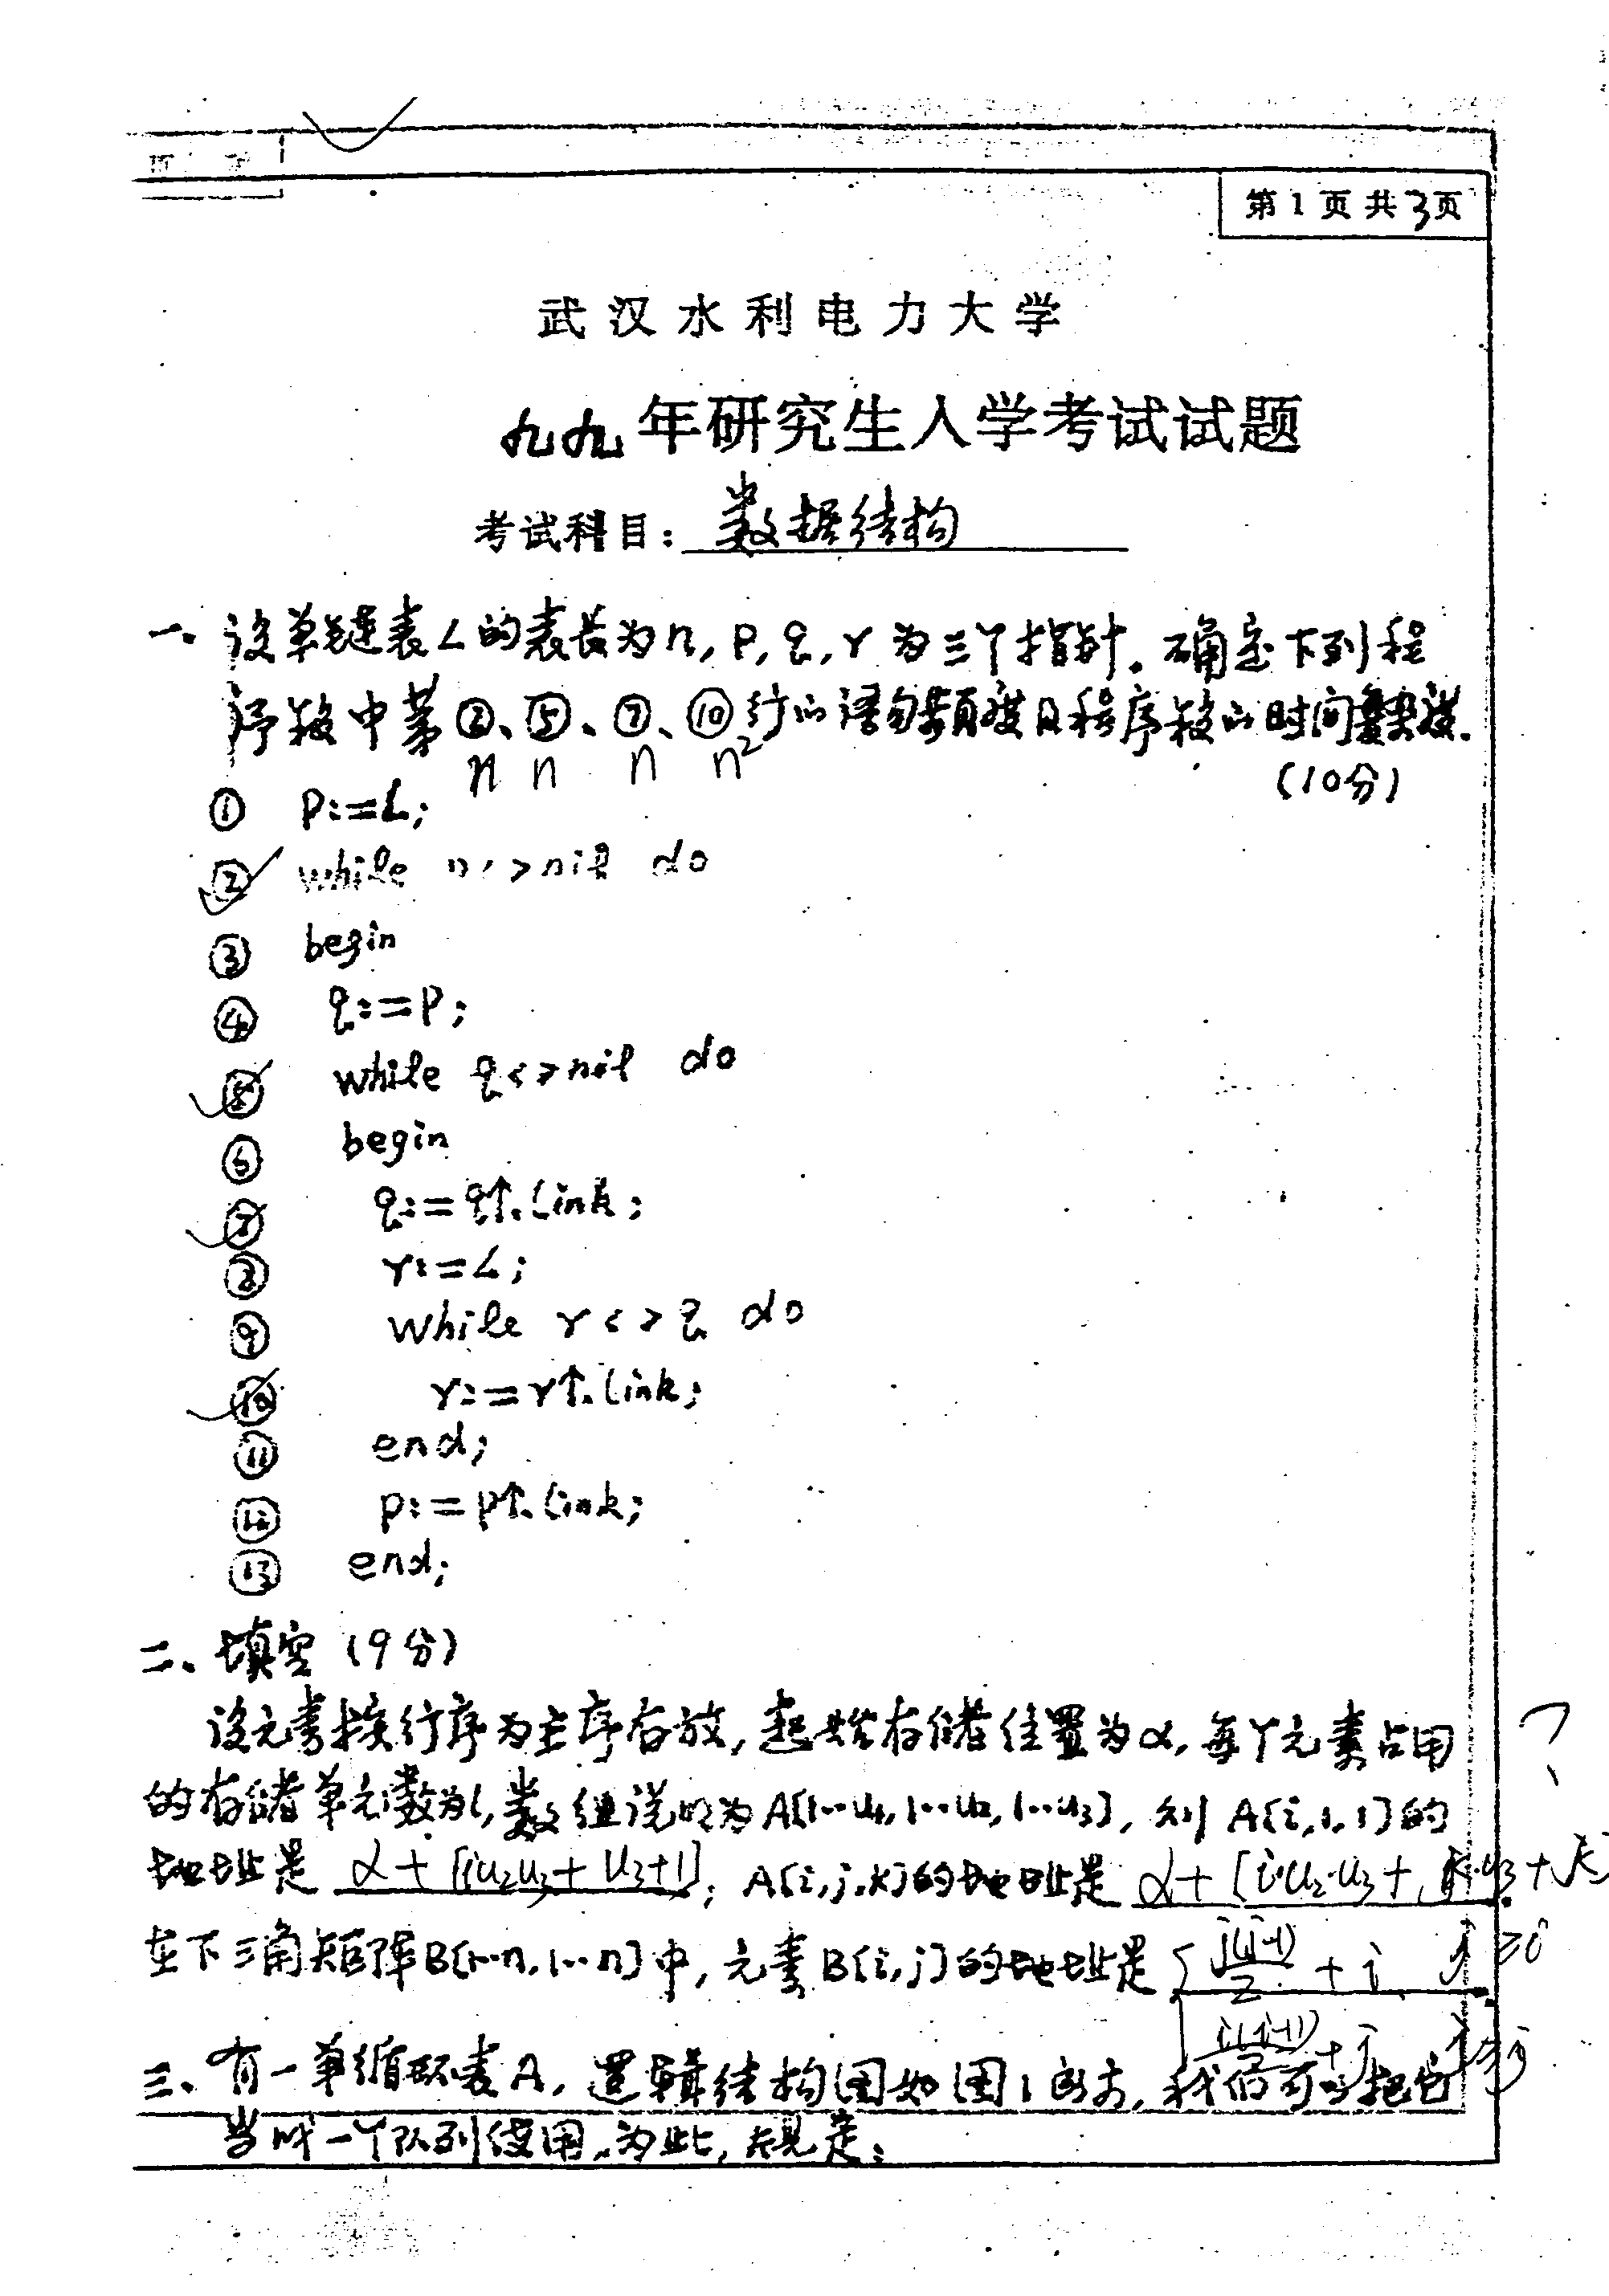 第1页共3页
武汉水利电力大学
九九年研究生入学考试试题
考试科目:数据结构
一.设单链表L的表长为n,P,q,r为三个指针.确定下列程
序段中第②、⑤、⑦、⑩行的语句频度及程序段的时间复杂度.
n n n n²
(10分)
① P:=L;
② while <>nil do
③ begin
④ q:=P;
⑤ while q<>nil do
⑥ begin
⑦ q:=q↑.link;
⑧ r:=L;
⑨ while r<>q do
⑩ r:=r↑.link;
⑪ end;
⑫ p:=p↑.link;
⑬ end;
二、填空(9分)
设元素按行序为主序存放,起始存储位置为α,每个元素占用
?
的存储单元数为l,数组说明为A[1··u1,1··u2,1··u3],则A[i,1,1]的
地址是 α+[iu2u3+u3+1]; A[i,j,k]的地址是 α+[i·u2·u3+
在下三角矩阵B[1··n,1··n]中,元素B[i,j]的地址是 j(j-1)/2+i
i(i-1)/2+j
三、有一单循环表A,逻辑结构图如图1所示,我们可以把它
当成一个队列使用.为此,规定: